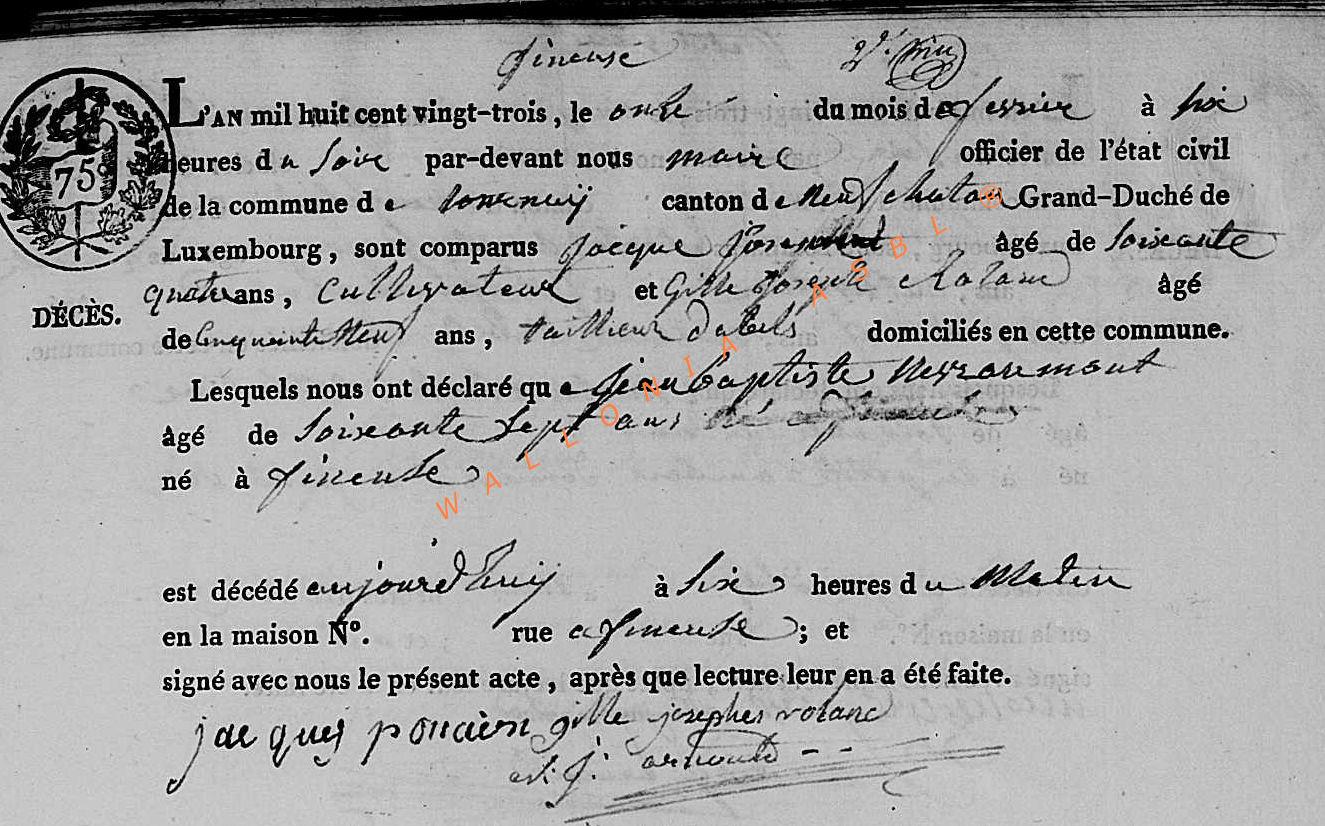 fineuse
L'AN mil huit cent vingt-trois, le onze du mois de fevrier à six
heures du soire par-devant nous maire officier de l'état civil
de la commune de tournay canton de Neufchateau Grand-Duché de
Luxembourg, sont comparus jacque âgé de soixante
quatre ans, Cultivateur et Gille Joseph âgé
75
DÉCÈS.
de Cinquante Neuf ans, taillieur dabils domiciliés en cette commune.
Lesquels nous ont déclaré que jean baptiste Neyraumont
âgé de soixante sept ans né a
né à fineuse
est décédé aujourd'huy à six heures du Matin
en la maison N°. rue a fineuse; et
signé avec nous le présent acte, après que lecture leur en a été faite.
jacques poncèen gille josephes rolanc
j: arnould
WALLONIA ASBL ©